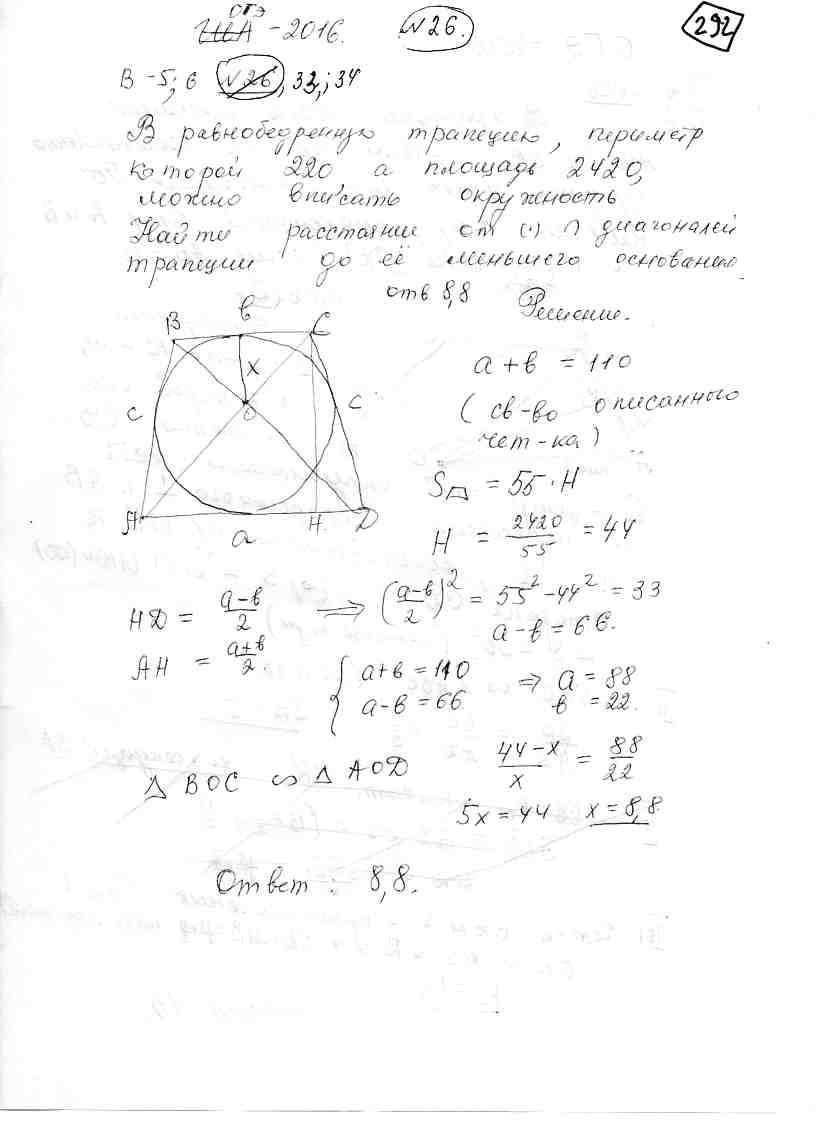 ОГЭ
ГИА - 2016. №26. 292
В -5; 6 №26, 33,; 34
В равнобедренную трапецию, периметр
которой 220 а площадь 2420,
можно вписать окружность
Найти расстояние от (·) ∩ диагоналей
трапеции до её меньшего основания
отв 8,8 Решение.
B в C
x
c O c
A a H. D
a + в = 110
( св-во описанного
чет-ка)
S = 55 · H
H = 2420/55 = 44
HD = (a-в)/2 ⟹ ((a-в)/2)² = 55² - 44² = 33
a - в = 66.
AH = (a+в)/2.
{ a+в = 110 ⇒ a = 88
a-в = 66. в = 22.
△ BOC ∽ △ AOD (44-x)/x = 88/22
5x = 44 x = 8,8
Ответ : 8,8.